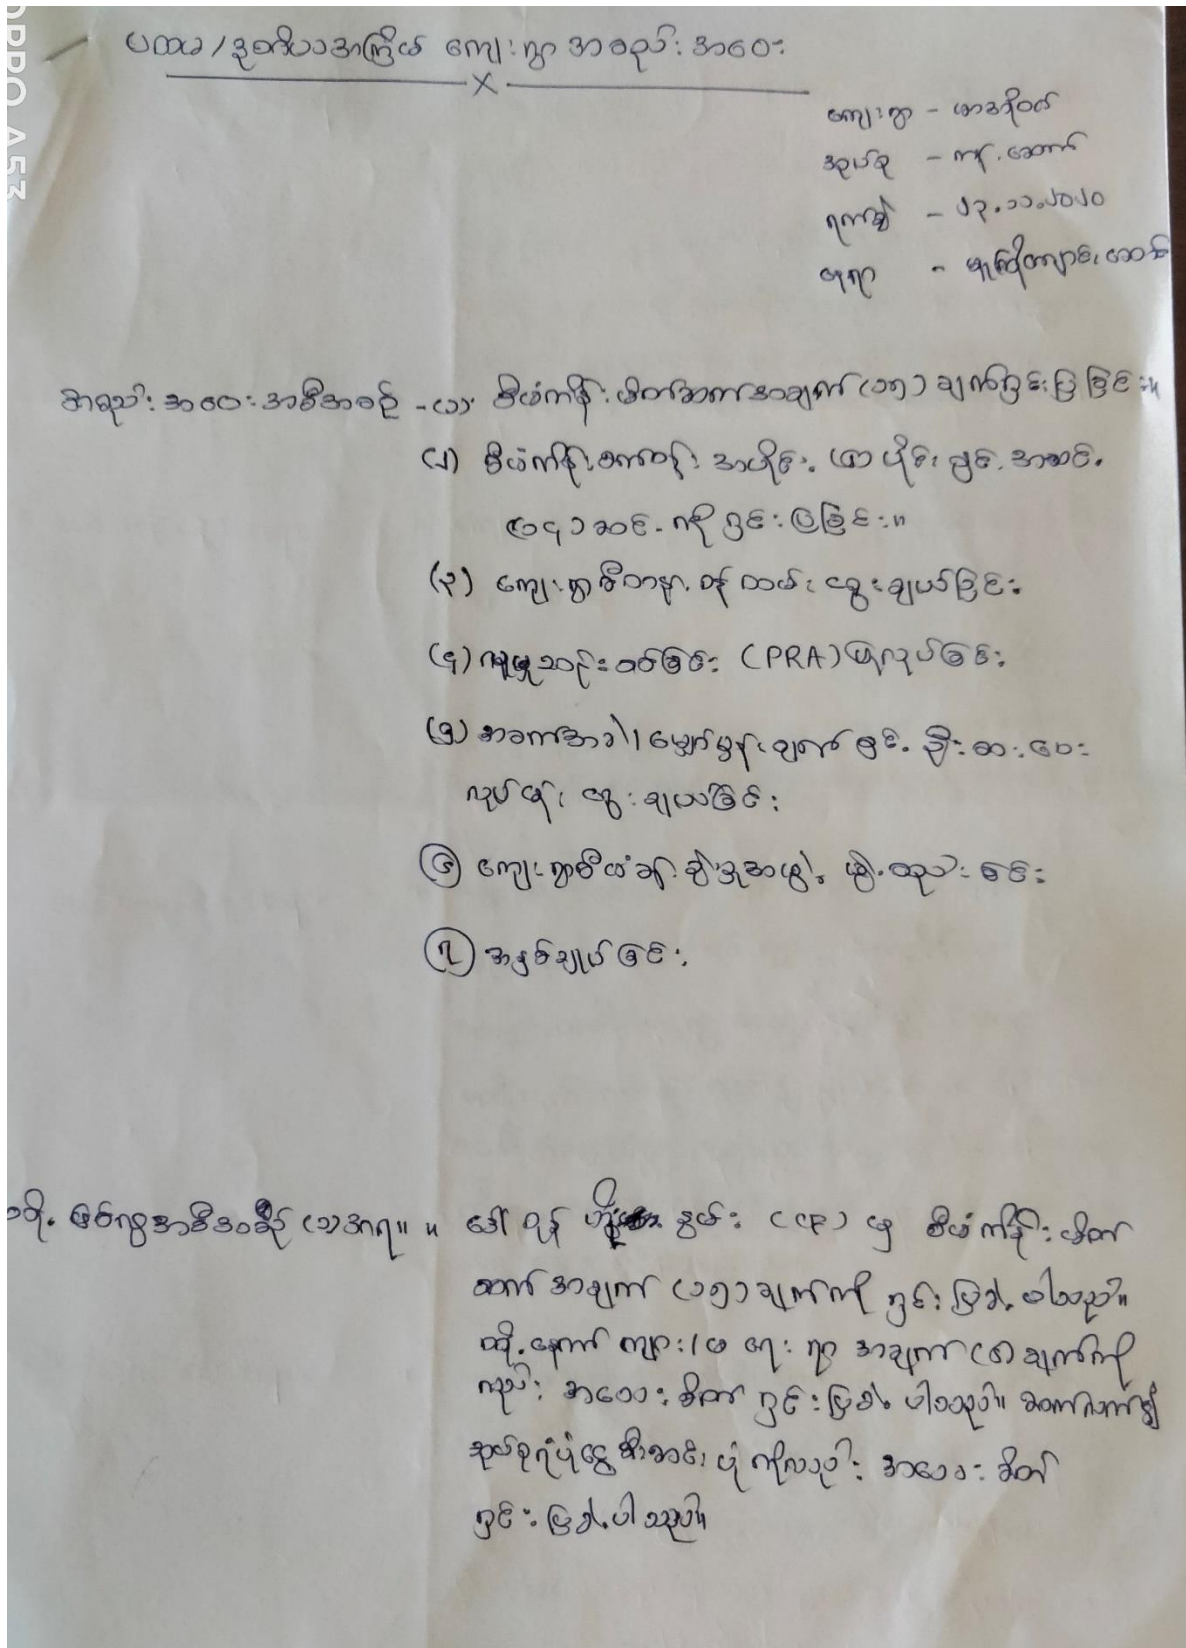 OPPO A53
ပထမ/ဒုတိယအကြိမ် ကျေးရွာ အစည်းအဝေး
ကျေးရွာ -
အုပ်စု -
ရက်စွဲ - ၂၃.၁၁.၂၀၂၀
နေရာ -
အစည်းအဝေးအစီအစဉ် - (၁) စီမံကိန်း မိတ်ဆက်အချက် (၁၅) ချက်ရှင်းပြခြင်း။
(၂) စီမံကိန်းစက်ဝန်း အပိုင်း နှင့် အဆင့်
ဆင့် ကို ရှင်းပြခြင်း။
(၃) ကျေးရွာစေတနာ့ဝန်ထမ်း ရွေးချယ်ခြင်း
(၄) လူမှုဆန်းစစ်ခြင်း (PRA) ပြုလုပ်ခြင်း
(၅) အခက်အခဲ၊ မျှော်မှန်းချက် နှင့် ဦးစားပေး
လုပ်ငန်း ရွေးချယ်ခြင်း
၆ ကျေးရွာစီမံခန့်ခွဲမှုအဖွဲ့ ဖွဲ့စည်းခြင်း
၇ အနှစ်ချုပ်ခြင်း
အစီအစဉ် (၁) အရ။ ။ ဒေါ် နွမ်း (CF) မှ စီမံကိန်း မိတ်
ဆက် အချက် (၁၅) ချက်ကို ရှင်းပြခဲ့ပါသည်။
ထို့နောက် ကျား/မ ရေးရာ အချက် (၈) ချက်ကို
လည်း အသေးစိတ် ရှင်းပြခဲ့ပါသည်။ ဆက်လက်၍
အုပ်စုရံပုံငွေ ပုံကိုလည်း အသေးစိတ်
ရှင်းပြခဲ့ပါသည်။